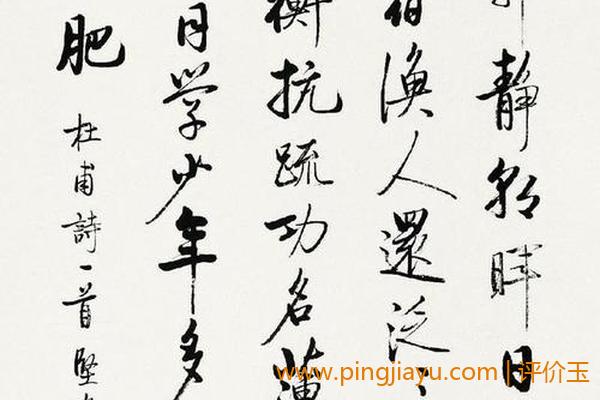 靜朝暉日
宿漁人還泛
衡抗疏功名薄
同學少年多
肥
杜甫詩一首堅
www.pingjiayu.com | 评价玉